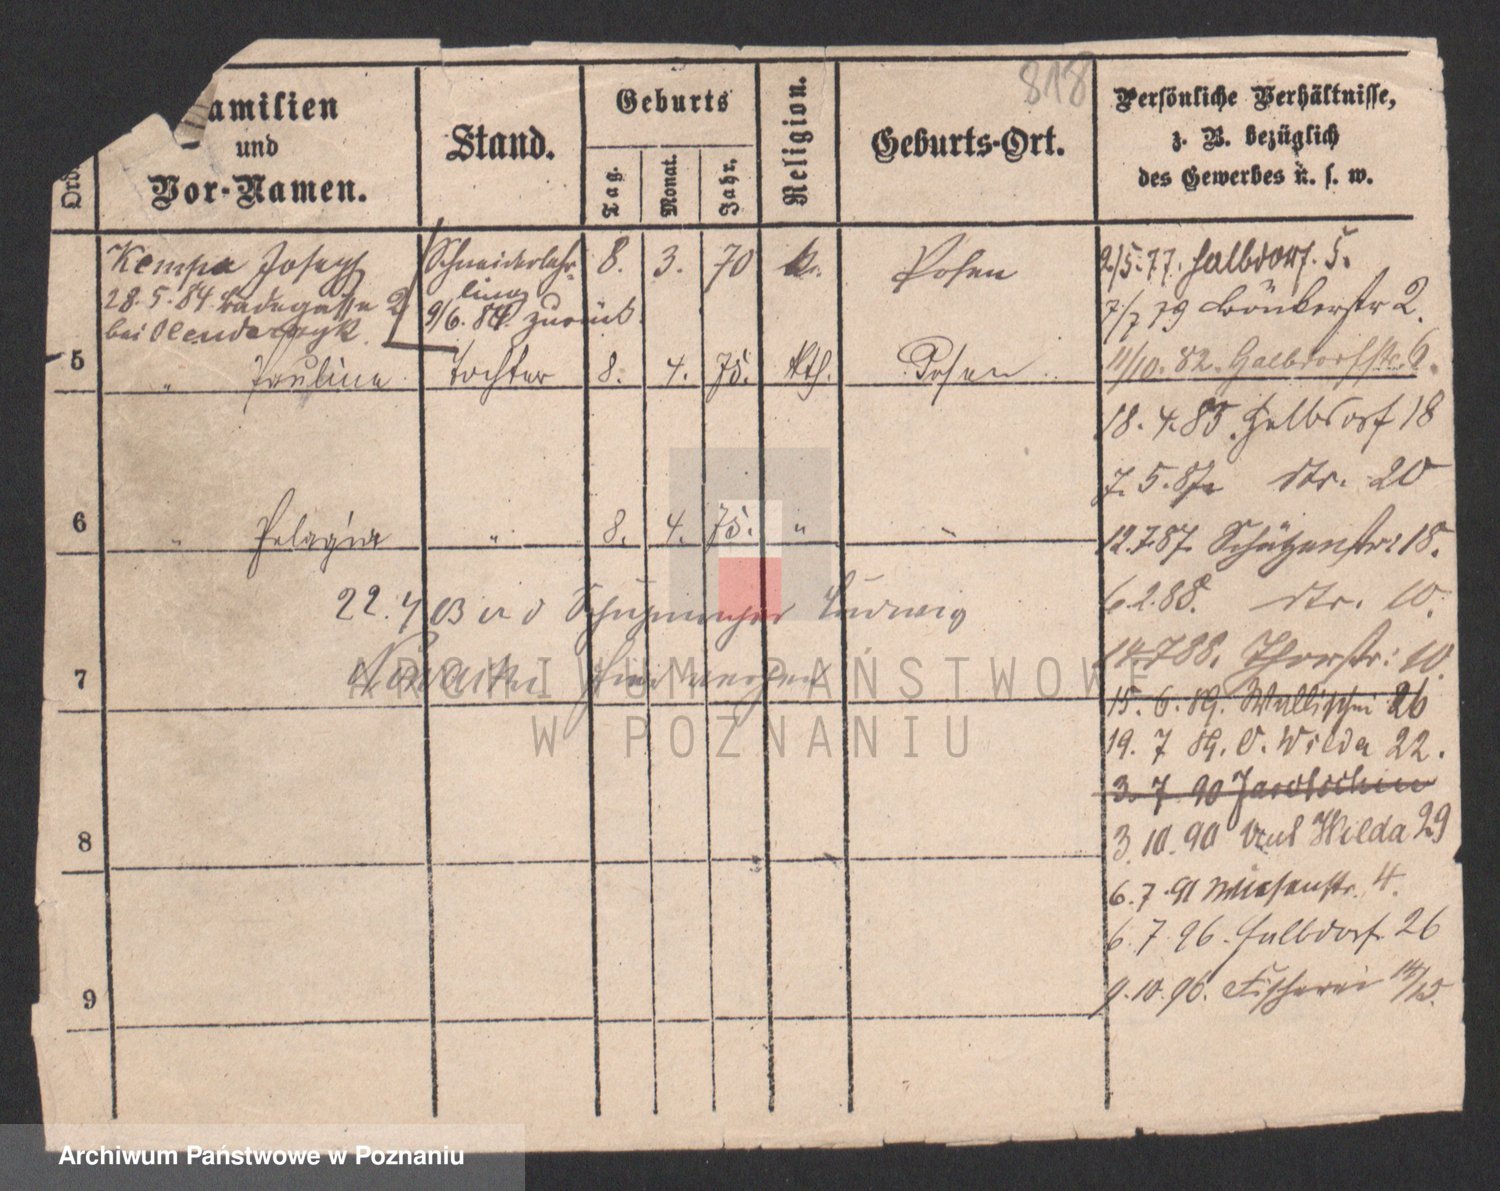 818
Ord
amilien
und
Vor-Namen.
Stand.
Geburts
Tag.
Monat.
Jahr.
Religion.
Geburts-Ort.
Persönliche Verhältnisse,
z. B. bezüglich
des Gewerbes u. s. w.
Kempa Joseph Schneiderlehr- 8. 3. 70 k. Posen
ling
28.5.84 Badegasse 2 9/6. 84. zurück.
bei Olendarczyk.
5 " Paulina Tochter 8. 4. 75. kth. Posen
6 " Pelagia " 8. 4. 75. " "
22. 4 03 Schuhmacher Ludwig
Nowacki
7
8
9
2/5.77. Halbdorf. 5.
7/7 79 Bönkerstr 2.
11/10. 82. Halbdorfstr. 6.
18. 4. 85. Halbdorf 18
7. 5. 87 str. 20
12.7.87. Schützenstr: 18.
6.2.88. str. 10.
14.7.88. Thorstr: 10
15. 6. 89. Wallischei 26
19. 7 89. O. Wilda 22.
3. 7 90 Jarotschin
3. 10. 90 Wilda 29
6. 7. 91 Wiesenstr. 4.
6. 7. 96. Halbdorf. 26
9. 10. 96. Fischerei 14/15.
ARCHIWUM PAŃSTWOWE
W POZNANIU
Archiwum Państwowe w Poznaniu